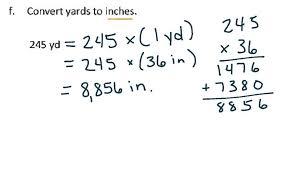 f. Convert yards to inches.
245 yd = 245 × (1 yd)
= 245 × (36 in)
= 8,856 in.
245
× 36
1476
+ 7380
8856